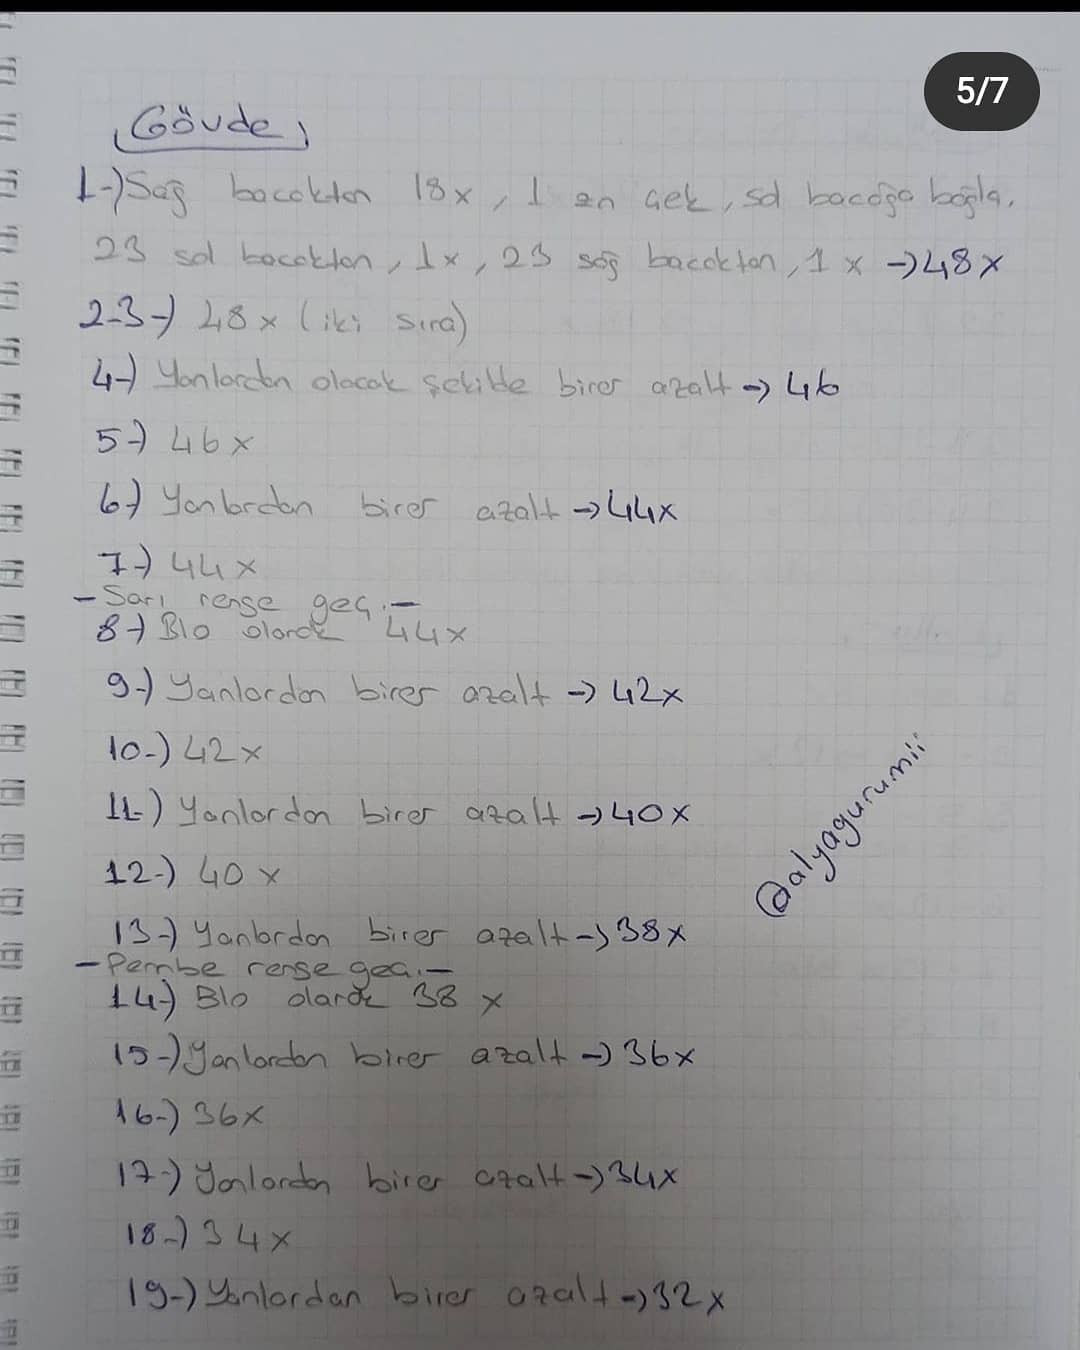 5/7
Gövde
1-) Sağ bacaktan 18x, 1 zn çek, sol bacağa bağla.
23 sol bacaktan, 1x, 23 sağ bacaktan, 1x → 48x
2-3-) 48x (iki sıra)
4-) Yanlardan olacak şekilde birer azalt → 46
5-) 46x
6-) Yanlardan birer azalt → 44x
7-) 44x
- Sarı renge geç. -
8-) Blo olarak 44x
9-) Yanlardan birer azalt → 42x
10-) 42x
11-) Yanlardan birer azalt → 40x
12-) 40x
13-) Yanlardan birer azalt → 38x
- Pembe renge geç. -
14-) Blo olarak 38x
15-) Yanlardan birer azalt → 36x
16-) 36x
17-) Yanlardan birer azalt → 34x
18-) 34x
19-) Yanlardan birer azalt → 32x
@alyagurumii